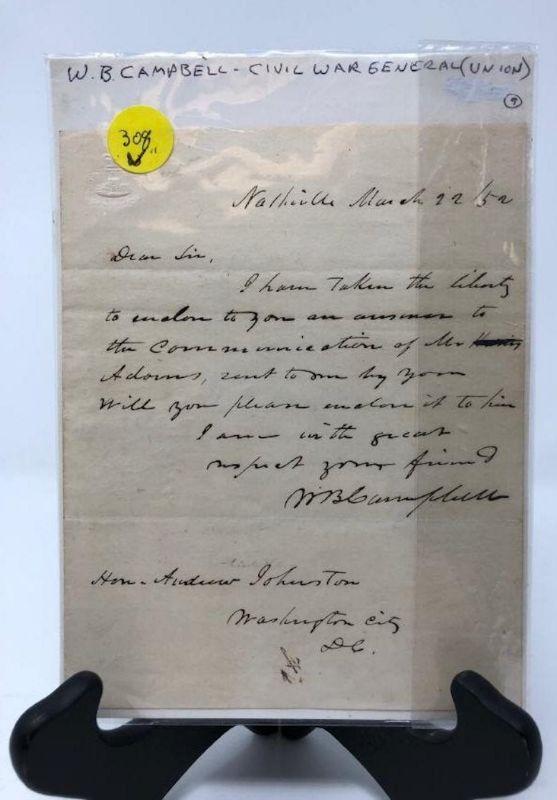 W. B. CAMPBELL - CIVIL WAR GENERAL (UNION)
9
308
Nashville March 22/52
Dear Sir,
I have taken the liberty
to enclose to you an answer to
the Communication of Mr
Adams, sent to me by you
Will you please enclose it to him
I am with great
respect your friend
WB Campbell
Hon. Andrew Johnston
Washington City
DC.